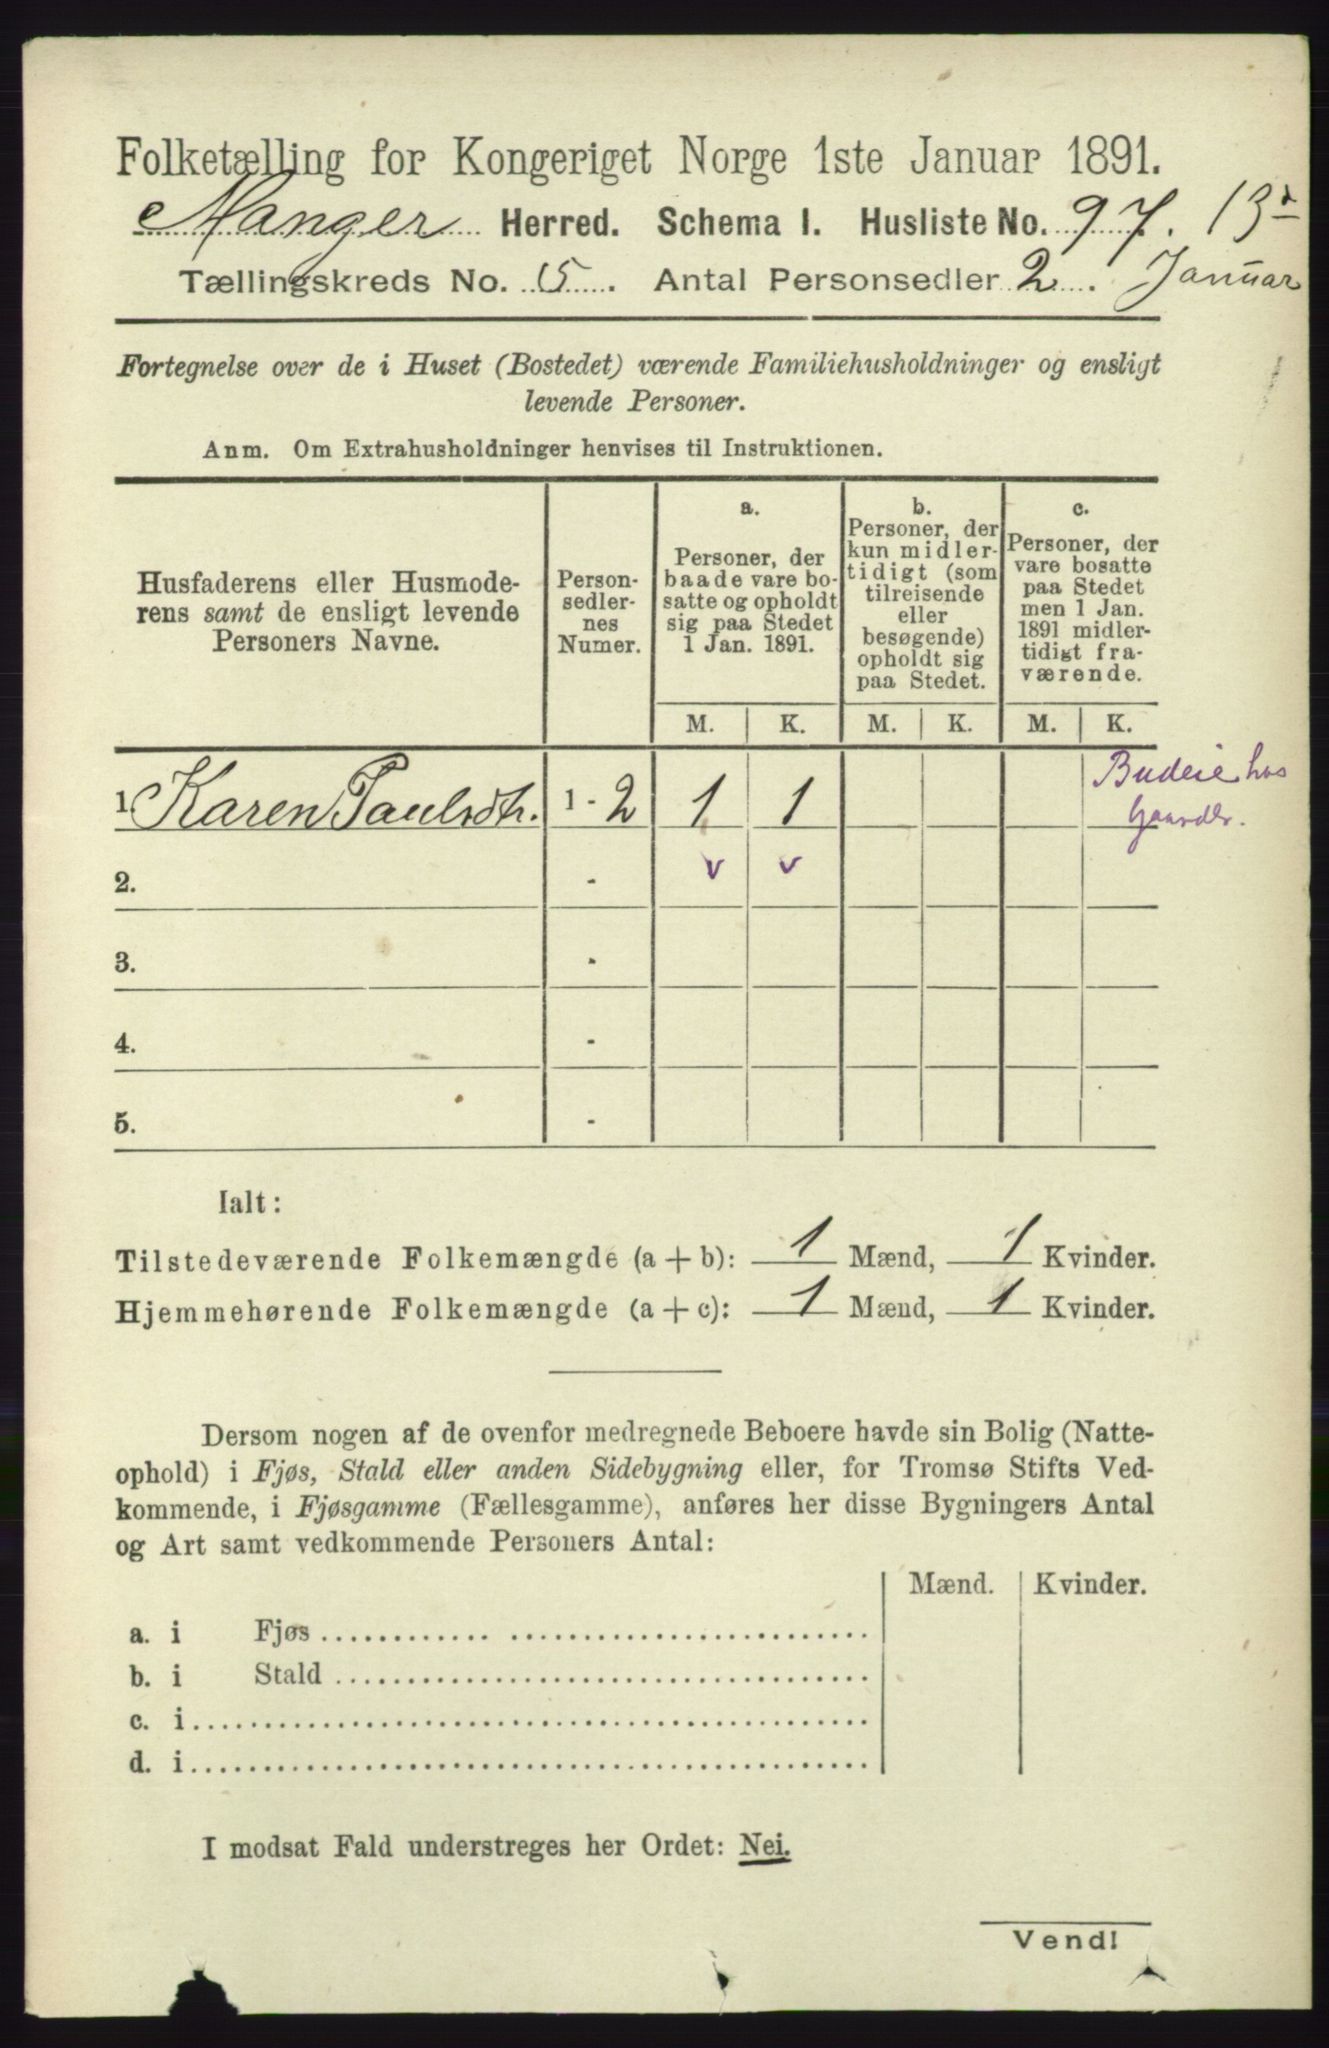 Folketælling for Kongeriget Norge 1ste Januar 1891.
Manger Herred. Schema I. Husliste No. 97. 13de
Tællingskreds No. 5. Antal Personsedler 2. Januar
Fortegnelse over de i Huset (Bostedet) værende Familiehusholdninger og ensligt
levende Personer.
Anm. Om Extrahusholdninger henvises til Instruktionen.
Husfaderens eller Husmode-
rens samt de ensligt levende
Personers Navne.
Person-
sedler-
nes
Numer.
a.
Personer, der
baade vare bo-
satte og opholdt
sig paa Stedet
1 Jan. 1891.
b.
Personer, der
kun midler-
tidigt (som
tilreisende
eller
besøgende)
opholdt sig
paa Stedet.
c.
Personer, der
vare bosatte
paa Stedet
men 1 Jan.
1891 midler-
tidigt fra-
værende.
M. K. M. K. M. K.
1. Karen Paulsdtr. 1 - 2 1 1
Budeie hos
Gaardbr.
2. - v v
3. -
4. -
5. -
Ialt:
Tilstedeværende Folkemængde (a + b): 1 Mænd, 1 Kvinder.
Hjemmehørende Folkemængde (a + c): 1 Mænd, 1 Kvinder.
Dersom nogen af de ovenfor medregnede Beboere havde sin Bolig (Natte-
ophold) i Fjøs, Stald eller anden Sidebygning eller, for Tromsø Stifts Ved-
kommende, i Fjøsgamme (Fællesgamme), anføres her disse Bygningers Antal
og Art samt vedkommende Personers Antal:
Mænd. Kvinder.
a. i Fjøs
b. i Stald
c. i
d. i
I modsat Fald understreges her Ordet: Nei.
Vend!